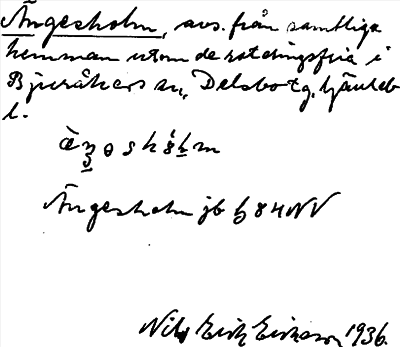 Ängesholm, avs. från samtliga
hemman utom de roteringsfria i
Bjuråkers sn, Delsbo tg, Gävleb
l.
Ängesholm jb b 84 NV
Nils Erik Eriksson 1936.